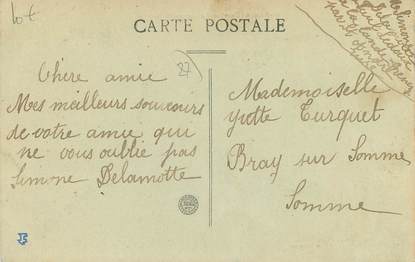 lot
CARTE POSTALE
27
Chere amie
Mes meilleurs souvenirs
de votre amie qui
ne vous oublie pas
Simone Delamotte
Mademoiselle
Yvette Turquet
Bray sur Somme
Somme